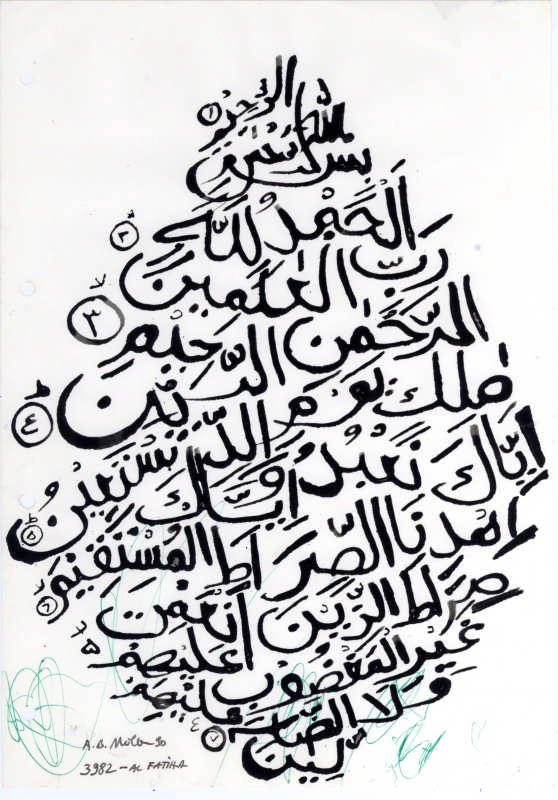 بِسْمِ اللَّهِ الرَّحْمٰنِ الرَّحِيْمِ ١
اَلْحَمْدُ لِلَّهِ ٢
رَبِّ الْعٰلَمِيْنَ
الرَّحْمٰنِ الرَّحِيْمِ ٣
مٰلِكِ يَوْمِ الدِّيْنِ ٤
اِيَّاكَ نَعْبُدُ وَاِيَّاكَ نَسْتَعِيْنُ ٥
اِهْدِنَا الصِّرَاطَ الْمُسْتَقِيْمَ ٦
صِرَاطَ الَّذِيْنَ اَنْعَمْتَ
عَلَيْهِمْ
غَيْرِ الْمَغْضُوْبِ عَلَيْهِمْ
وَلَا الضَّا
لِّيْنَ ٧
3982 - AL FATIHA